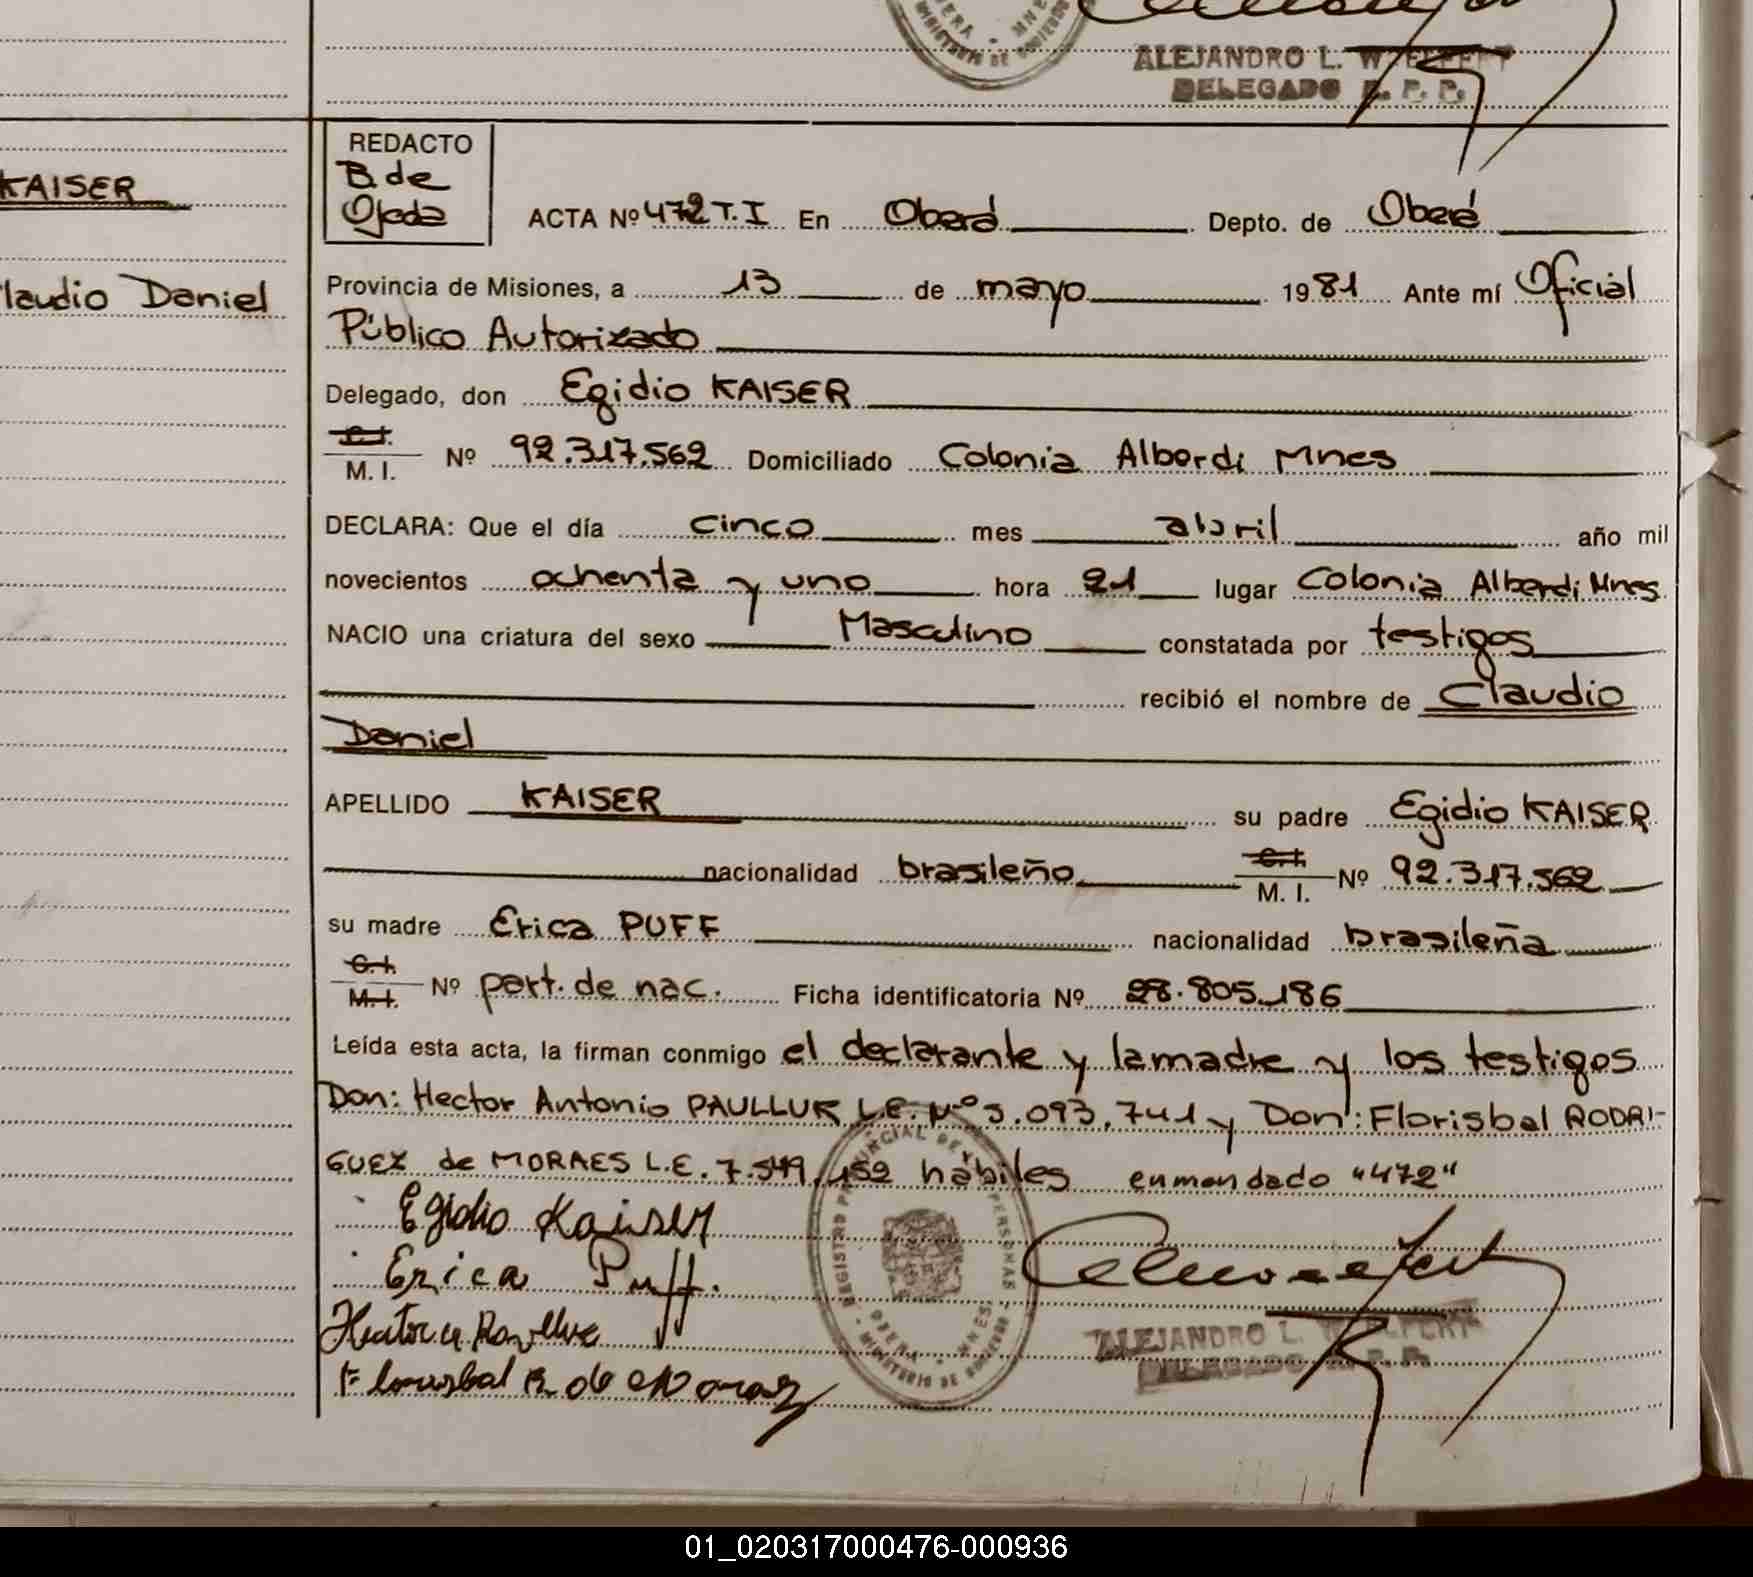 ALEJANDRO L. WELFERT
DELEGADO R. P. P.
REDACTO
B. de
Ojeda
KAISER
laudio Daniel
ACTA Nº 472 T. I En Oberá Depto. de Oberá
Provincia de Misiones, a 13 de mayo 1981 Ante mí Oficial
Público Autorizado
Delegado, don Egidio KAISER
C.I.
M. I. Nº 92.317.562 Domiciliado Colonia Alberdi Mnes
DECLARA: Que el día cinco mes abril año mil
novecientos ochenta y uno hora 21 lugar Colonia Alberdi Mnes
NACIO una criatura del sexo Masculino constatada por testigos
recibió el nombre de Claudio
Daniel
APELLIDO KAISER su padre Egidio KAISER
nacionalidad brasileño C.I. M. I. Nº 92.317.562
su madre Erica PUFF nacionalidad brasileña
C.I. M.I. Nº part. de nac. Ficha identificatoria Nº 28.805.186
Leída esta acta, la firman conmigo el declarante y la madre y los testigos
Don: Hector Antonio PAULLUK L.E. Nº 5.093.741 y Don: Florisbal RODRI-
GUEZ de MORAES L.E. 7.549.152 hábiles enmendado "472"
Egidio Kaiser
Erica Puff.
REGISTRO PROVINCIAL DE LAS PERSONAS
OBERA - MNES
MINISTERIO DE GOBIERNO
ALEJANDRO L. WELFERT
DELEGADO R. P. P.
01_020317000476-000936